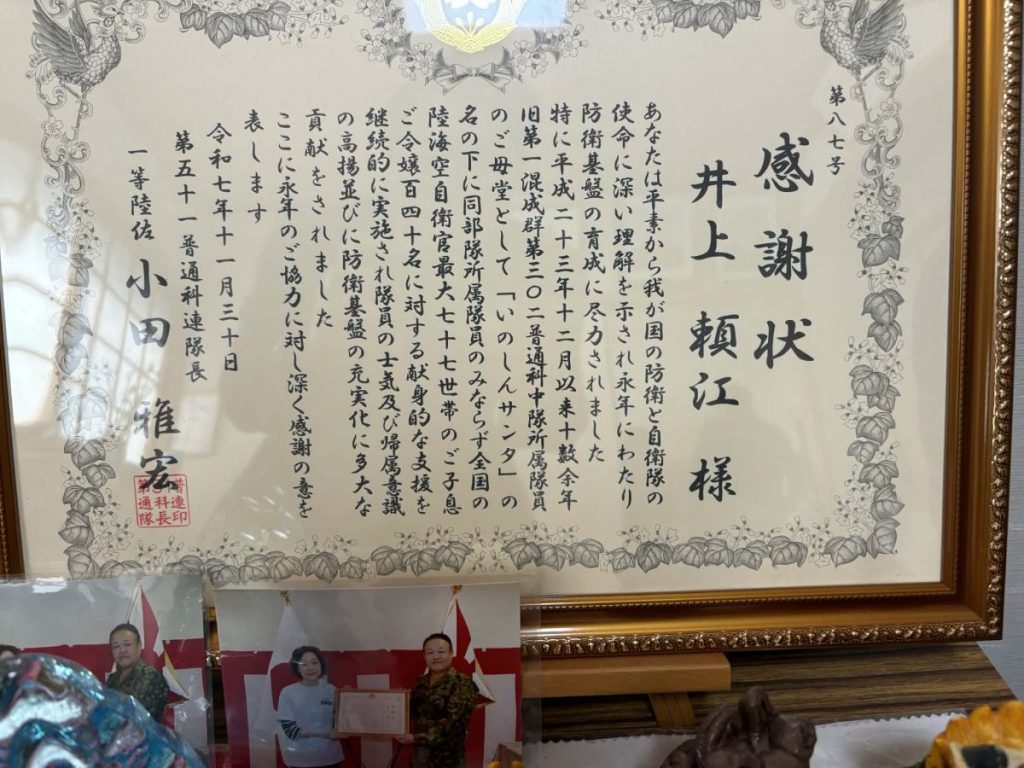 第八七号
感謝状
井上頼江様
あなたは平素から我が国の防衛と自衛隊の
使命に深い理解を示され永年にわたり
防衛基盤の育成に尽力されました
特に平成二十三年十二月以来十数余年
旧第一混成群第三〇二普通科中隊所属隊員
のご母堂として「いのしんサンタ」の
名の下に同部隊所属隊員のみならず全国の
陸海空自衛官最大七十七世帯のご子息
ご令嬢百四十名に対する献身的な支援を
継続的に実施され隊員の士気及び帰属意識
の高揚並びに防衛基盤の充実化に多大な
貢献をされました
ここに永年のご協力に対し深く感謝の意を
表します
令和七年十一月三十日
第五十一普通科連隊長
一等陸佐 小田雅宏